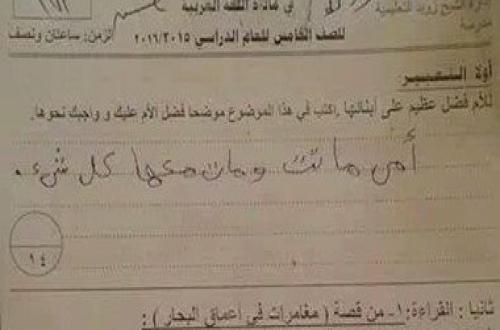 إدارة الشيخ زويد التعليمية
في مادة اللغة العربية
للصف الخامس للعام الدراسي ٢٠١٦/٢٠١٥
الزمن: ساعتان ونصف
أولا: التعبير:
للأم فضل عظيم على أبنائها. اكتب في هذا الموضوع موضحا فضل الأم عليك و واجبك نحوها.
أمى ماتت ومات معها كل شىء.
١٤
ثانيا : القراءة: ١- من قصة ( مغامرات في أعماق البحار ) :